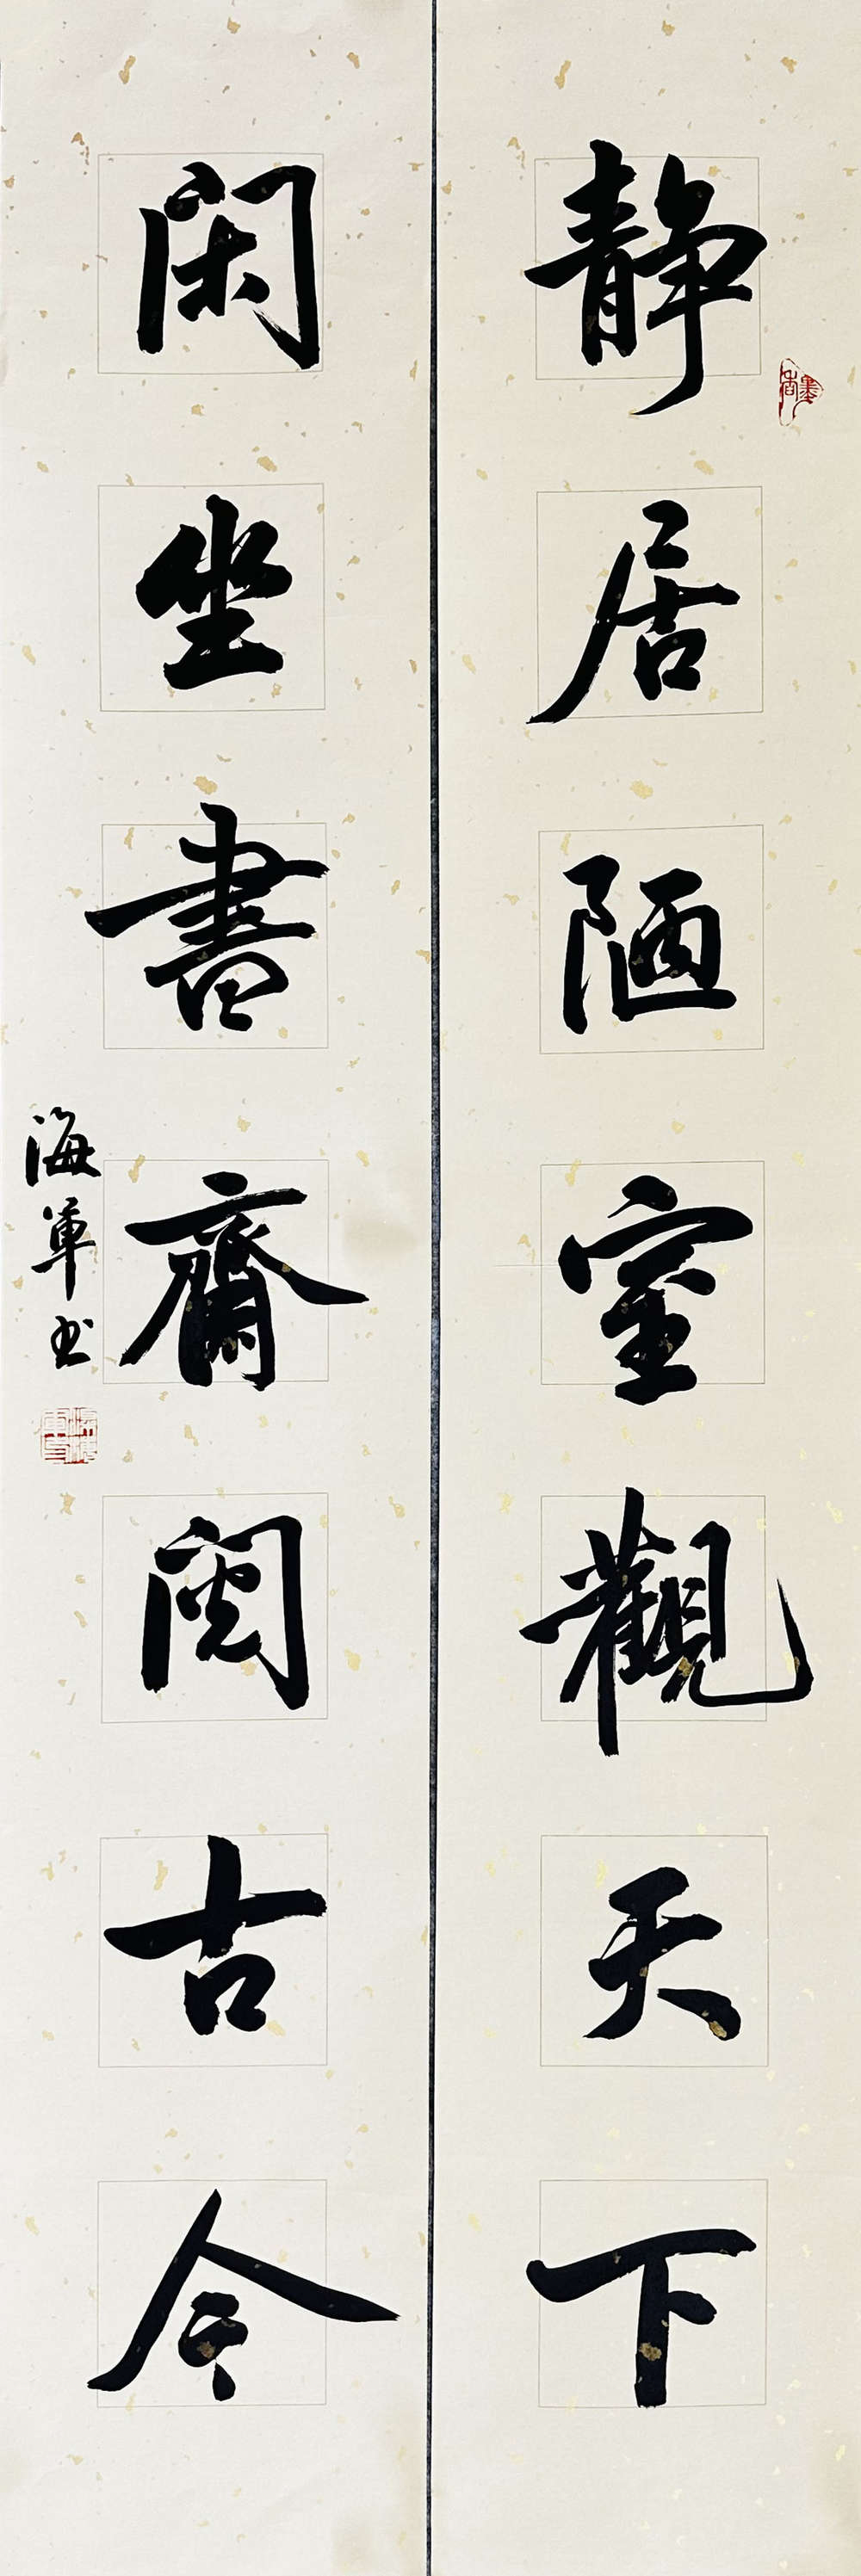 静居陋室觀天下
閑坐書齋閱古今
海軍书